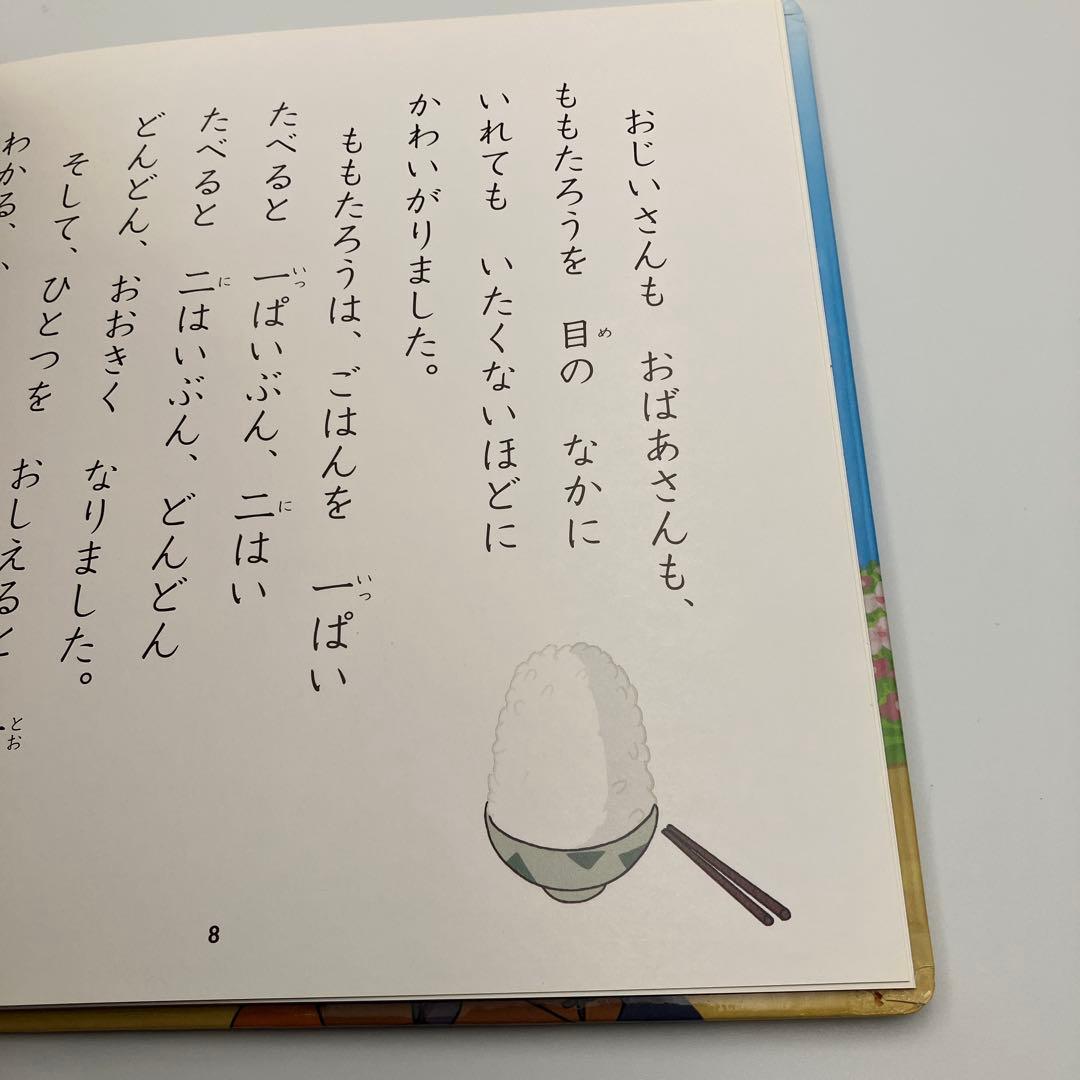 おじいさんも　おばあさんも、
ももたろうを　目の　なかに
いれても　いたくないほどに
かわいがりました。
ももたろうは、ごはんを　一ぱい
たべると　一ぱいぶん、二はい
たべると　二はいぶん、どんどん
どんどん、おおきく　なりました。
そして、ひとつを　おしえると
わかる、
8